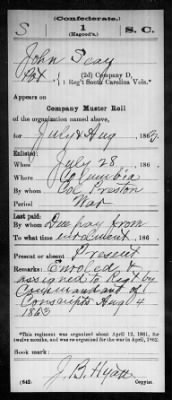 (Confederate.)
S 1 S. C.
(Hagood's.)
John Seay
Pvt., (2d) Company D,
1 Reg't South Carolina Vols.*
Appears on
Company Muster Roll
of the organization named above,
for July & Aug, 1863.
Enlisted:
When July 28, 186 .
Where Columbia
By whom Col Preston
Period War
Last paid:
By whom Due pay from
To what time enrolment, 186 .
Present or absent Present
Remarks: Enroled &
assigned to Regt by
Commandant of
Conscripts Aug 4
1863
*This regiment was organized about April 12, 1861, for
twelve months, and was re-organized for the war in April, 1862.
Book mark:
J. B. Hyatt
(642) Copyist.